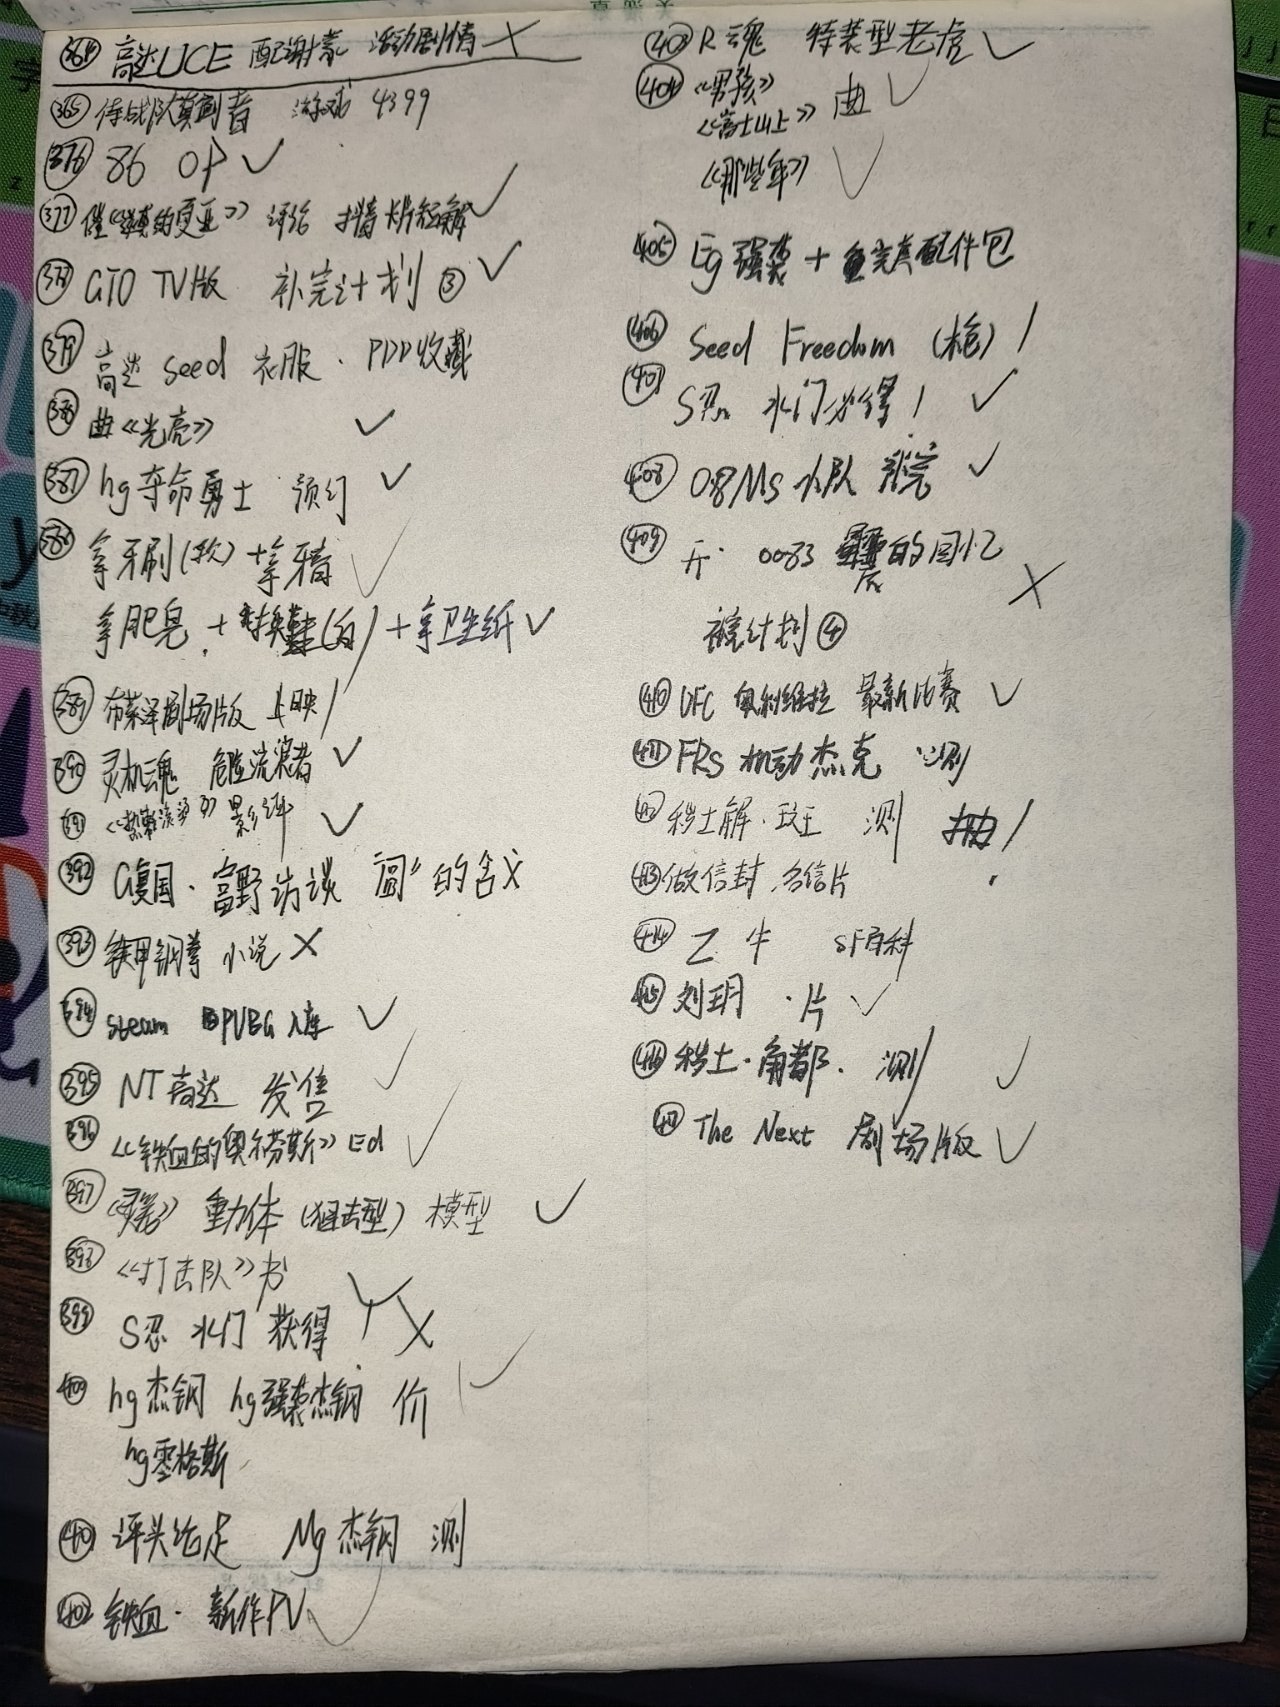 364 高达UCE 配谢素 活动剧情 ×
365 侍战队真剑者 游戏 4399
376 86 OP ✓
377 催《 的更正》 评论 卡片 解 ✓
378 GTO TV版 补完计划③ ✓
379 高达 Seed 衣服 · PDD收藏
380 曲《光亮》 ✓
387 hg夺命勇士 预订 ✓
388 拿牙刷(软)+拿牙膏 ✓
拿肥皂 + 换鞋(白)+拿卫生纸 ✓
389 布莱泽剧场版 上映
390 灵机魂 危险流浪者 ✓
391 《 》影评 ✓
392 G复国 · 富野访谈 "圆"的含义
393 铁甲钢拳 小说 ×
394 Steam PUBG 入库 ✓
395 NT高达 发售 ✓
396 《铁血的奥尔芬斯》Ed ✓
397 《灵笼》 重力体(狙击型) 模型 ✓
398 《打击队》书 ✓
399 S忍 水门 获得 ×
400 hg杰钢 hg强袭杰钢 价 ✓
hg雷格斯
401 评头论足 Mg杰钢 测
402 铁血 · 新作PV ✓
403 R魂 特装型老虎 ✓
404 《男孩》
《富士山上》 曲 ✓
《那些年》 ✓
405 Eg强袭 + 配件包
406 Seed Freedom (枪)
407 S忍 水门必得! ✓
408 08MS小队 补完 ✓
409 开 · 0083 星尘的回忆
补完计划④ ×
410 UFC 奥利维拉 最新比赛 ✓
411 FRS 机动杰克 测
412 秽土解 · 斑 测 抽
413 做信封 名信片
414 乙牛 SF百科
415 刘玥 · 片 ✓
416 秽土 · 角都 · 测 ✓
417 The Next 剧场版 ✓